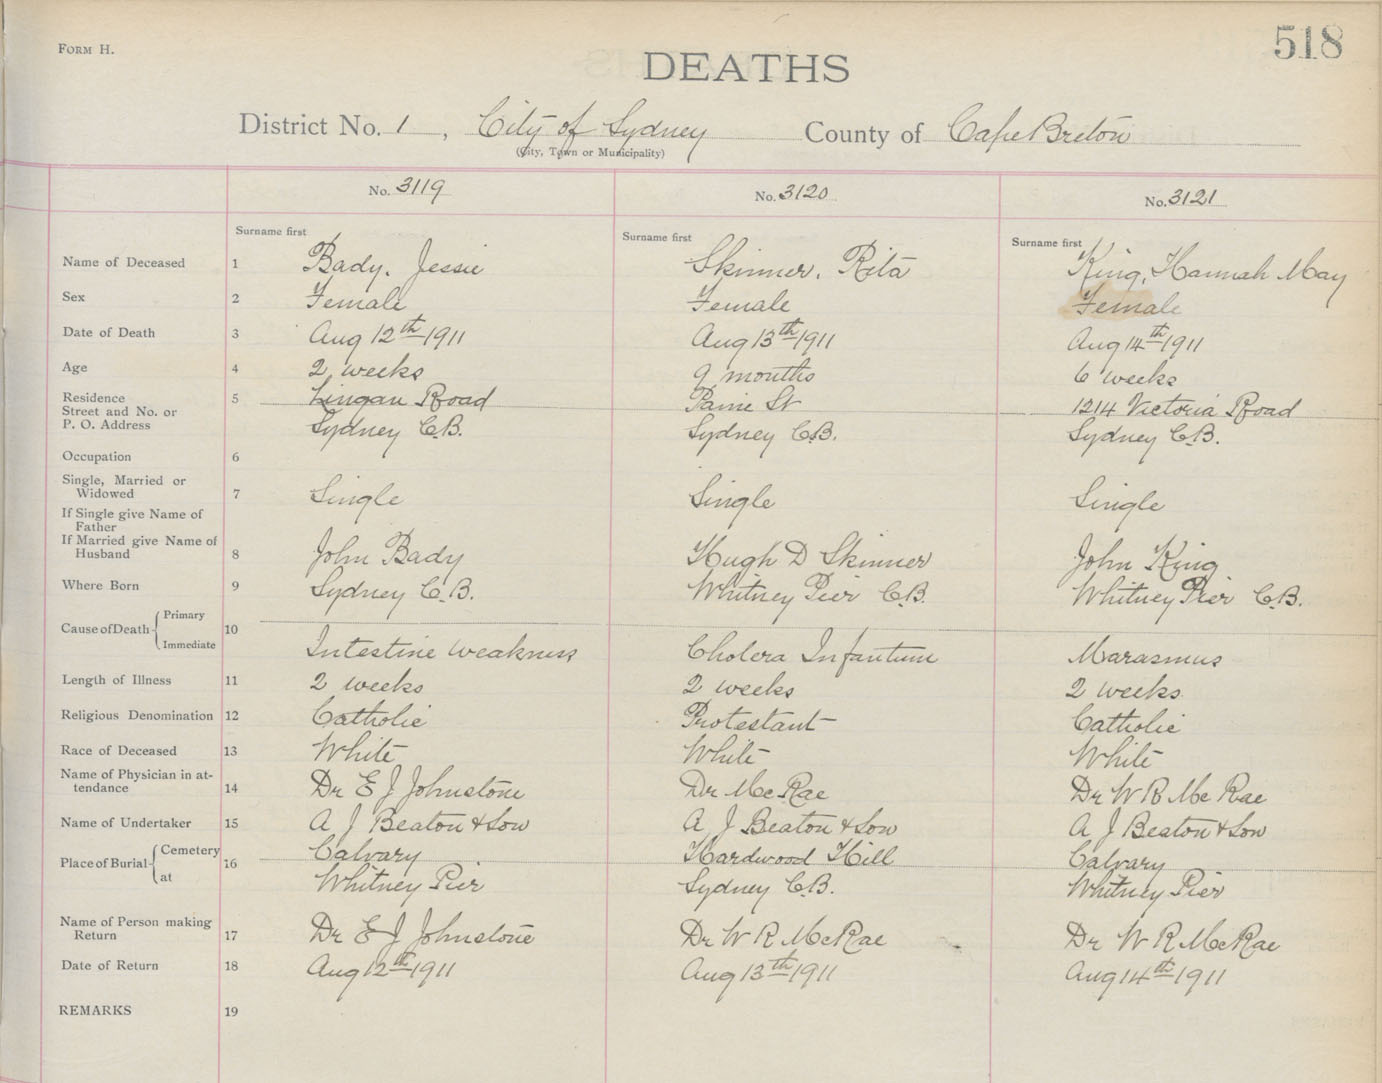 518
FORM H.
DEATHS
District No. 1, City of Sydney County of Cape Breton
(City, Town or Municipality)
No. 3119 No. 3120 No. 3121
Surname first Surname first Surname first
Name of Deceased 1 Bady, Jessie Skinner, Rita King, Hannah May
Sex 2 Female Female Female
Date of Death 3 Aug 12th 1911 Aug 13th 1911 Aug 14th 1911
Age 4 2 weeks 9 months 6 weeks
Residence 5 Lingan Road St 1214 Victoria Road
Street and No. or
P. O. Address Sydney C.B. Sydney C.B. Sydney C.B.
Occupation 6
Single, Married or
Widowed 7 Single Single Single
If Single give Name of
Father
If Married give Name of
Husband 8 John Bady Hugh D Skinner John King
Where Born 9 Sydney C.B. Whitney Pier C.B. Whitney Pier C.B.
Cause of Death Primary
10
Immediate Intestine weakness Cholera Infantum Marasmus
Length of Illness 11 2 weeks 2 weeks 2 weeks
Religious Denomination 12 Catholic Protestant Catholic
Race of Deceased 13 White White White
Name of Physician in at-
tendance 14 Dr E J Johnstone Dr McRae Dr W R McRae
Name of Undertaker 15 A J Beaton & Son A J Beaton & Son A J Beaton & Son
Place of Burial Cemetery 16 Calvary Hardwood Hill Calvary
at Whitney Pier Sydney C.B. Whitney Pier
Name of Person making
Return 17 Dr E J Johnstone Dr W R McRae Dr W R McRae
Date of Return 18 Aug 12th 1911 Aug 13th 1911 Aug 14th 1911
REMARKS 19